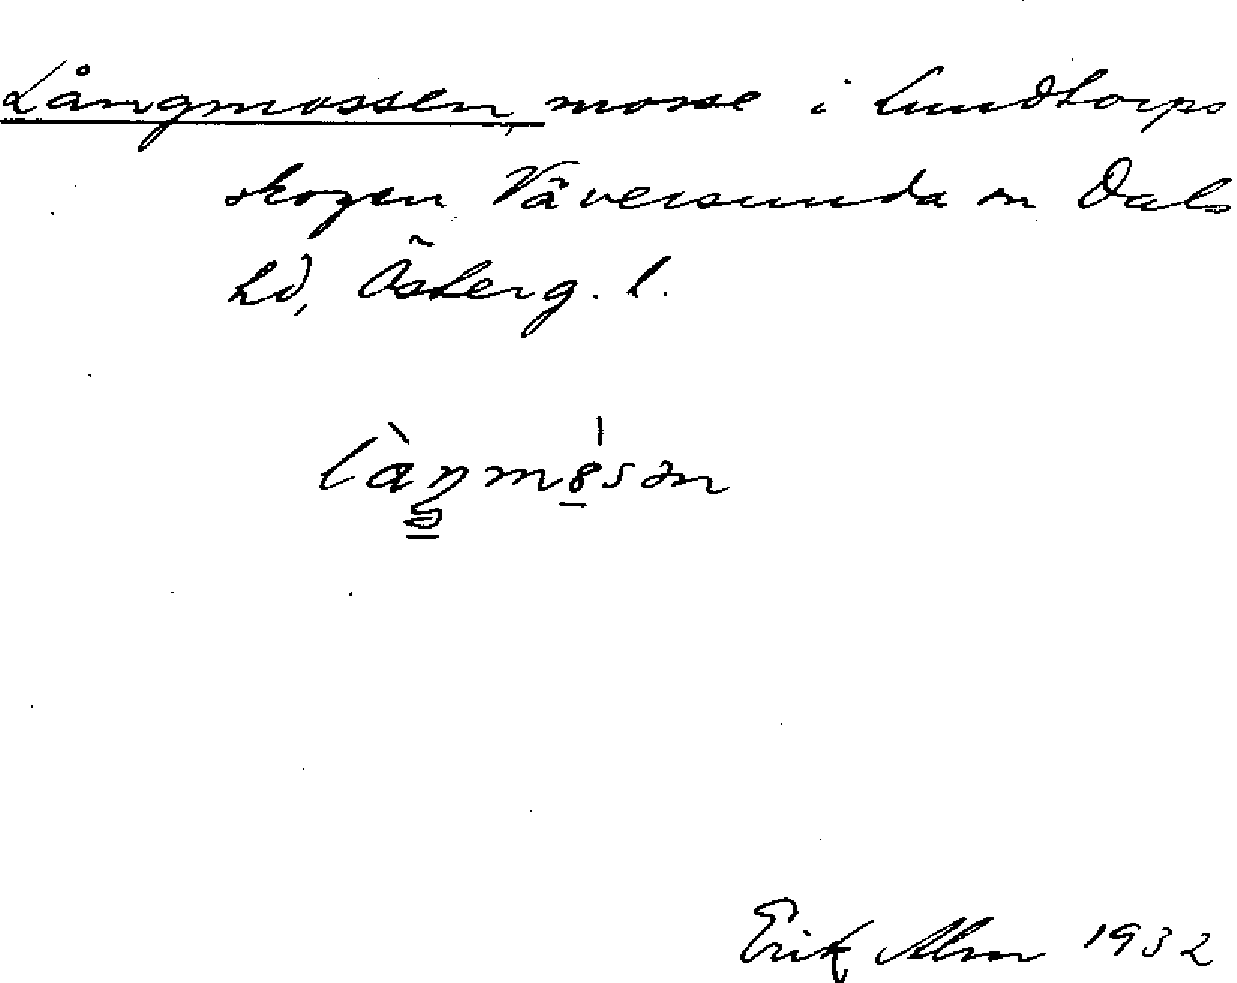 Långmossen, mosse i Lundtorps
skogen Väversunda sn Dals
hd, Österg. l.
làŋmɵ̀sən
Erik Alm 1932